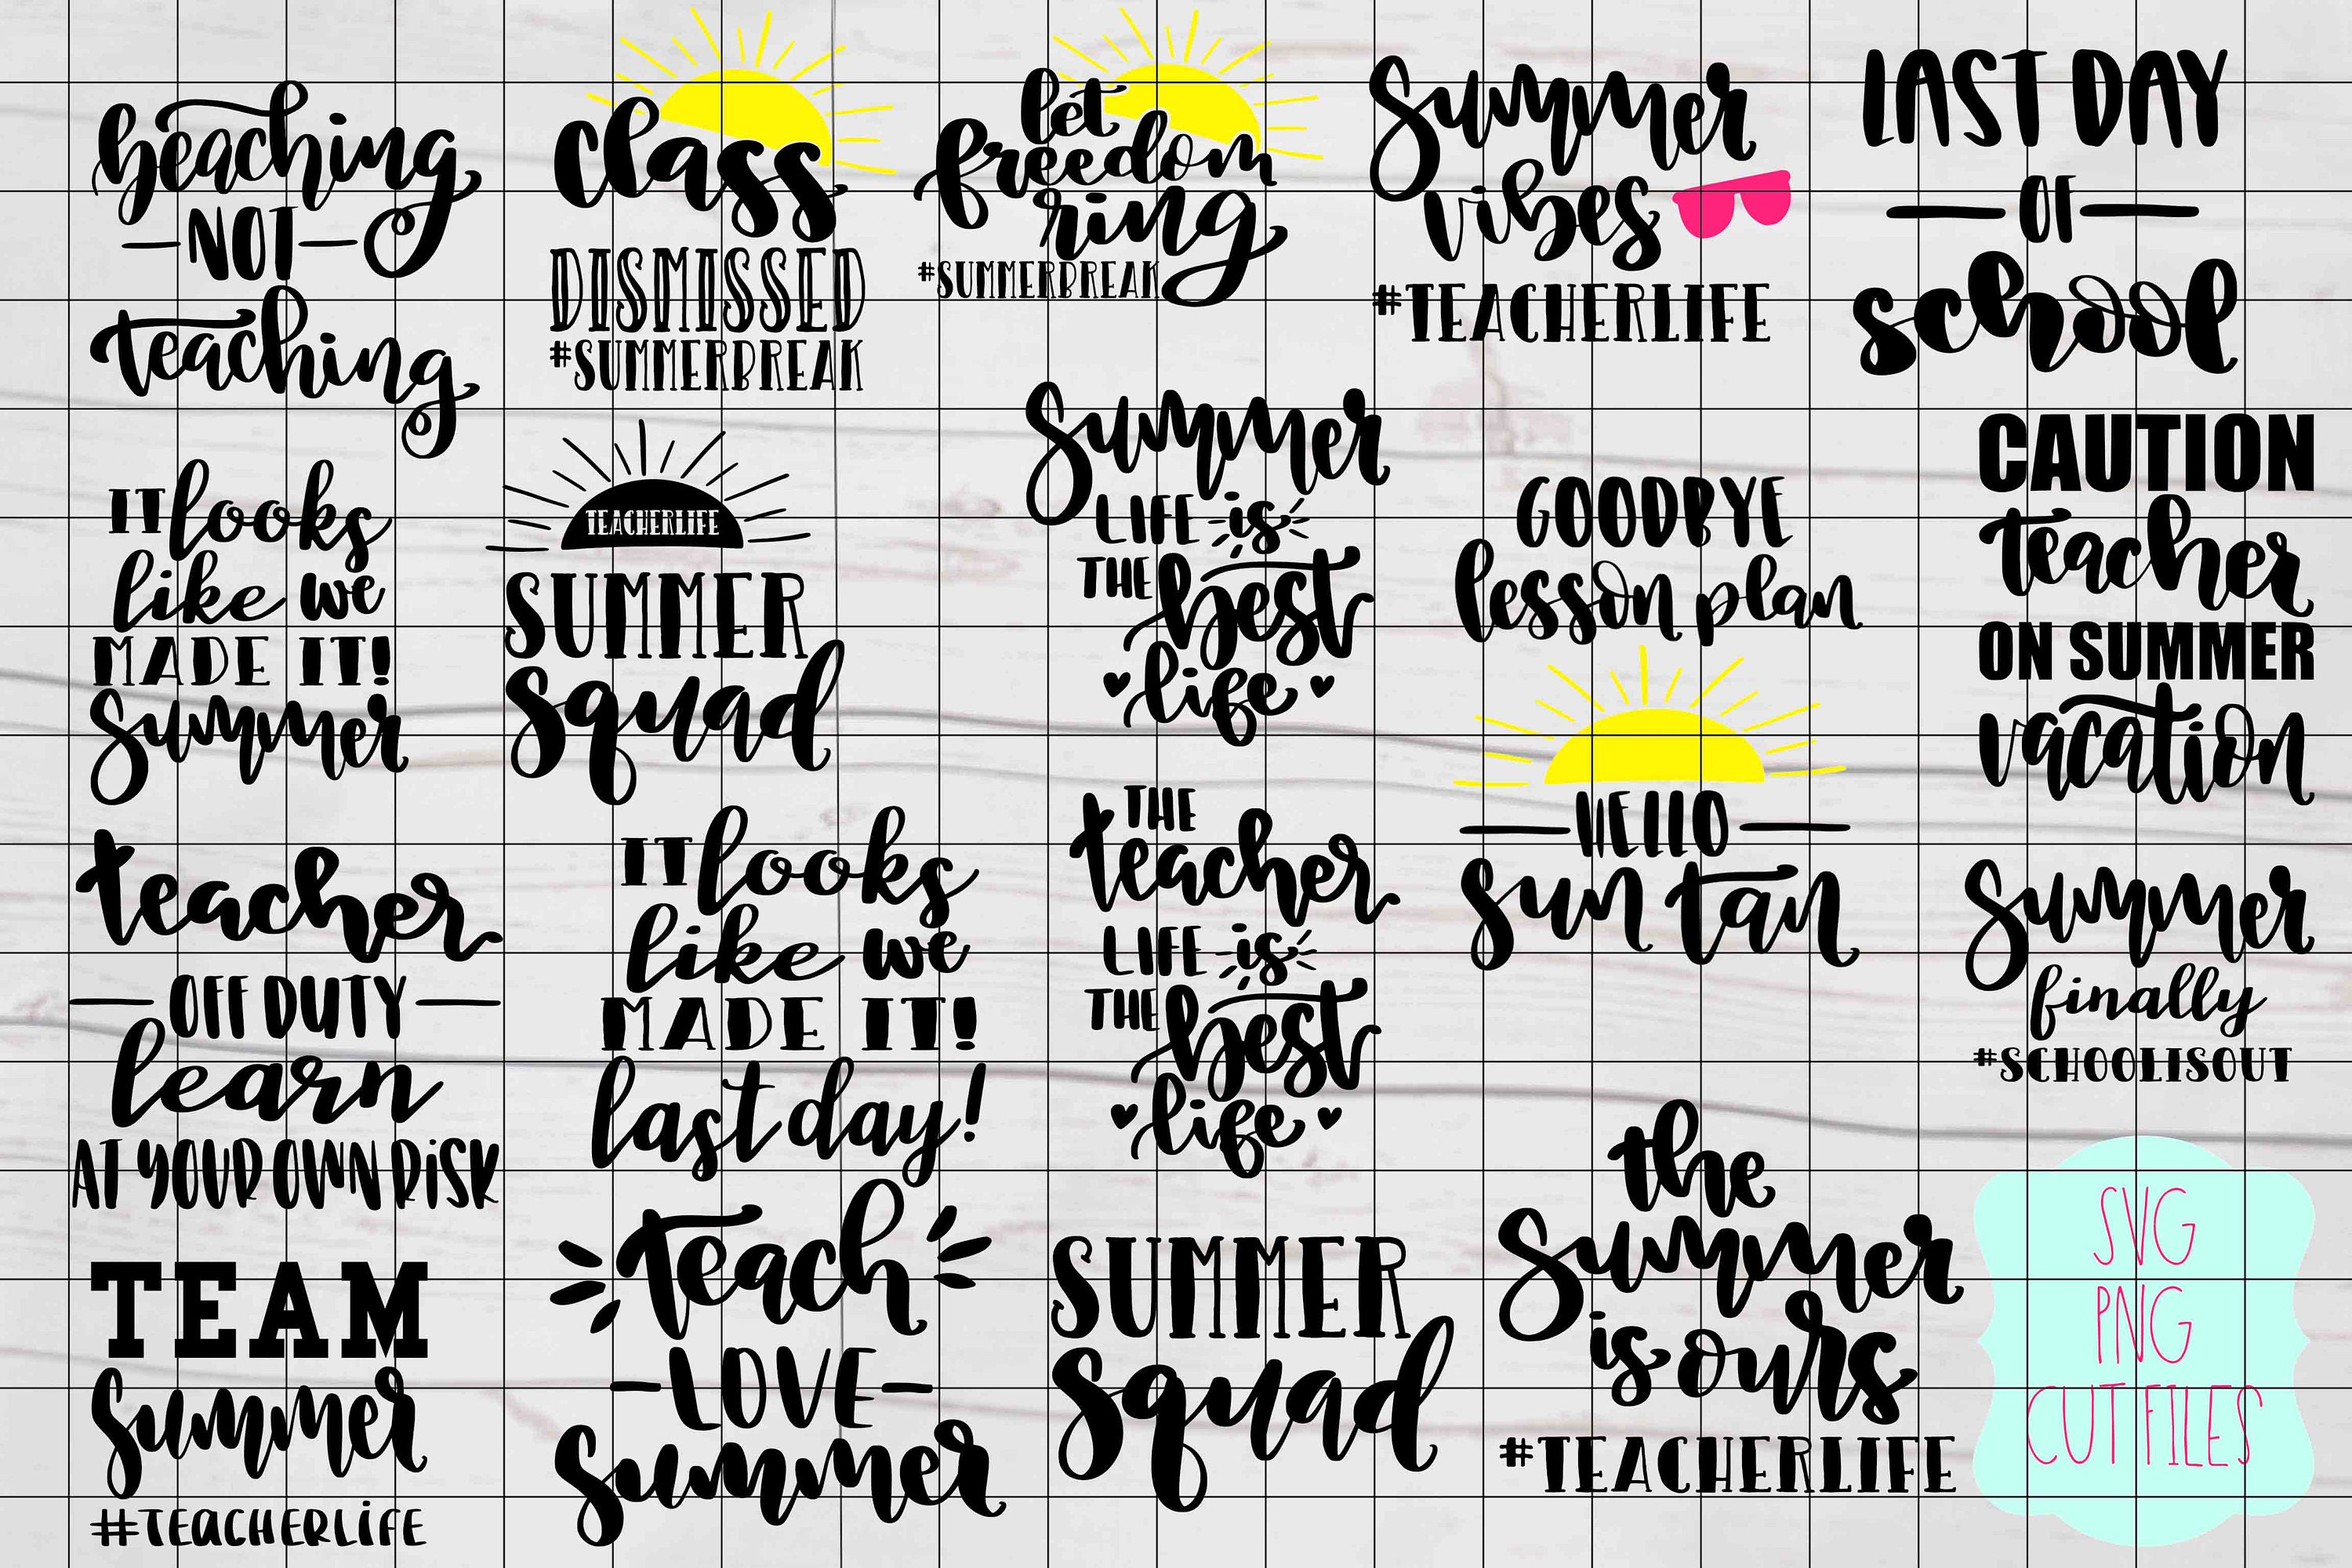 beaching
NOT
teaching
class
DISMISSED
#SUMMERBREAK
let
freedom
ring
#SUMMERBREAK
Summer
vibes
#TEACHERLIFE
LAST DAY
OF
school
IT looks
like we
MADE IT!
Summer
TEACHERLIFE
SUMMER
squad
Summer
LIFE is
THE best
life
GOODBYE
lesson plan
HELLO
sun tan
CAUTION
teacher
ON SUMMER
vacation
teacher
OFF DUTY
learn
AT YOUR OWN RiSK
IT looks
like we
MADE IT!
last day!
THE
teacher
LIFE is
THE best
life
Summer
finally
#SCHOOLISOUT
TEAM
Summer
#TEACHERLiFE
teach
LOVE
Summer
SUMMER
squad
the
Summer
is ours
#TEACHERLIFE
SVG
PNG
CUT FILES